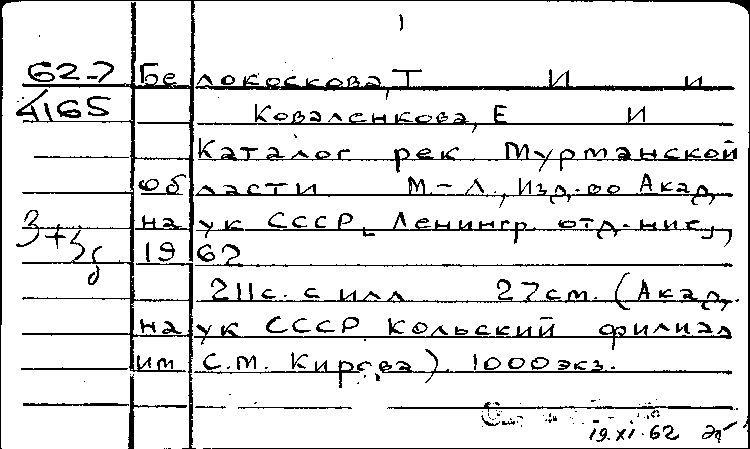 1
62-7 Белокоскова, Т И и
4165 Коваленкова, Е И
Каталог рек Мурманской
области М-Л., Изд-во Акад.
наук СССР, Ленингр. отд-ние,
3+3б 1962
211с. с илл 27см. (Акад.
наук СССР Кольский филиал
им С.М. Кирова). 1000экз.
19.XI.62